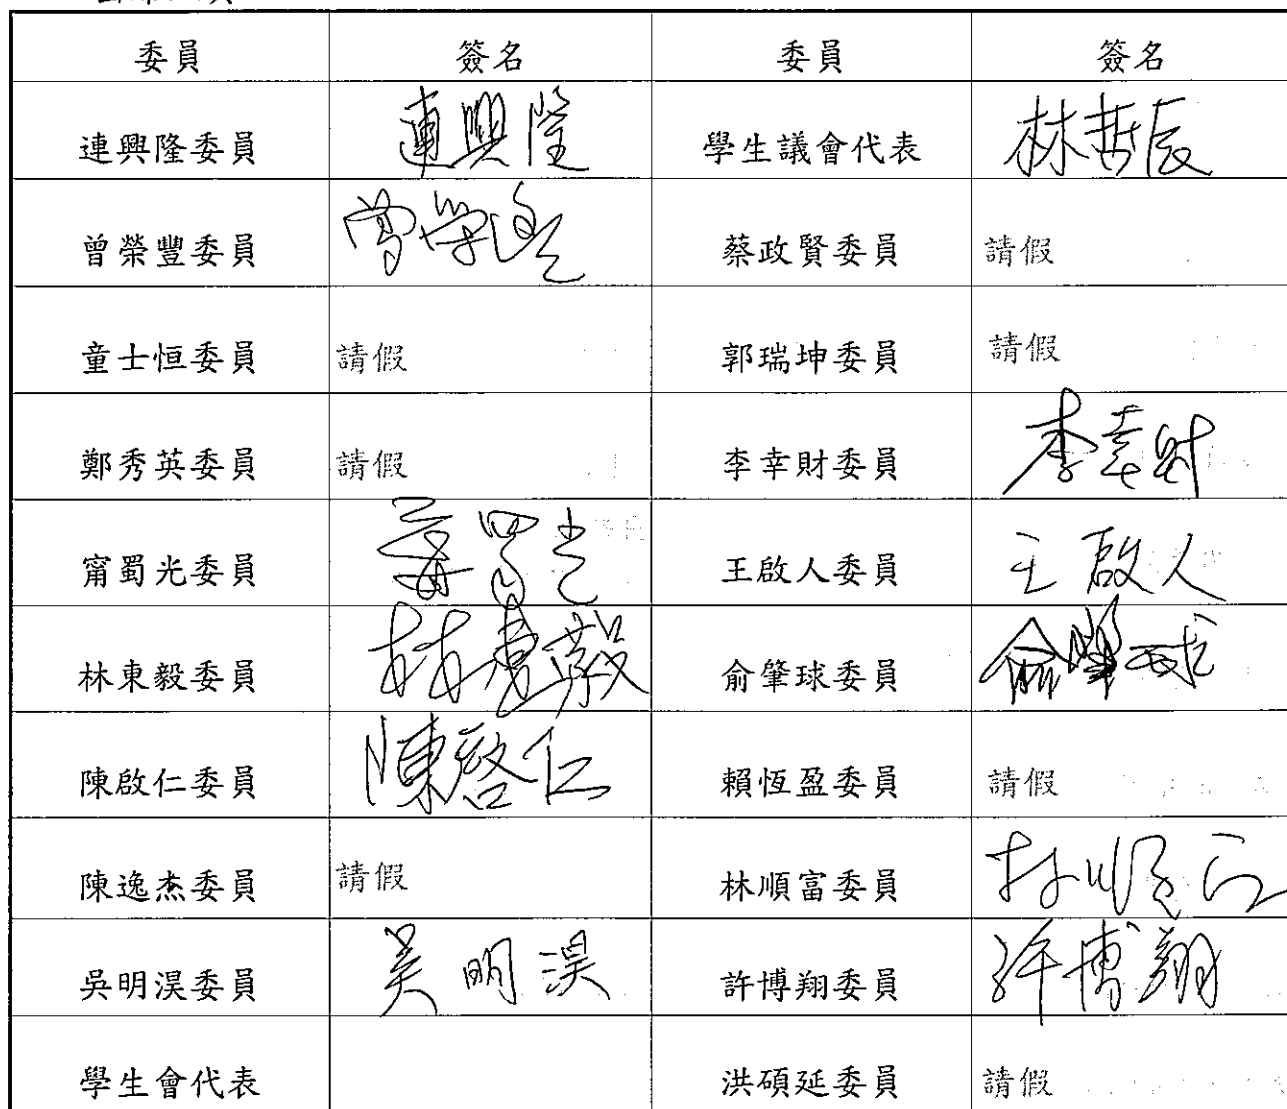 委員 簽名 委員 簽名
連興隆委員 連興隆 學生議會代表 林哲辰
曾榮豐委員 曾榮豐 蔡政賢委員 請假
童士恒委員 請假 郭瑞坤委員 請假
鄭秀英委員 請假 李幸財委員 李幸財
甯蜀光委員 甯蜀光 王啟人委員 王啟人
林東毅委員 林東毅 俞肇球委員 俞肇球
陳啟仁委員 陳啓仁 賴恆盈委員 請假
陳逸杰委員 請假 林順富委員 林順富
吳明淏委員 吳明淏 許博翔委員 許博翔
學生會代表 洪碩延委員 請假